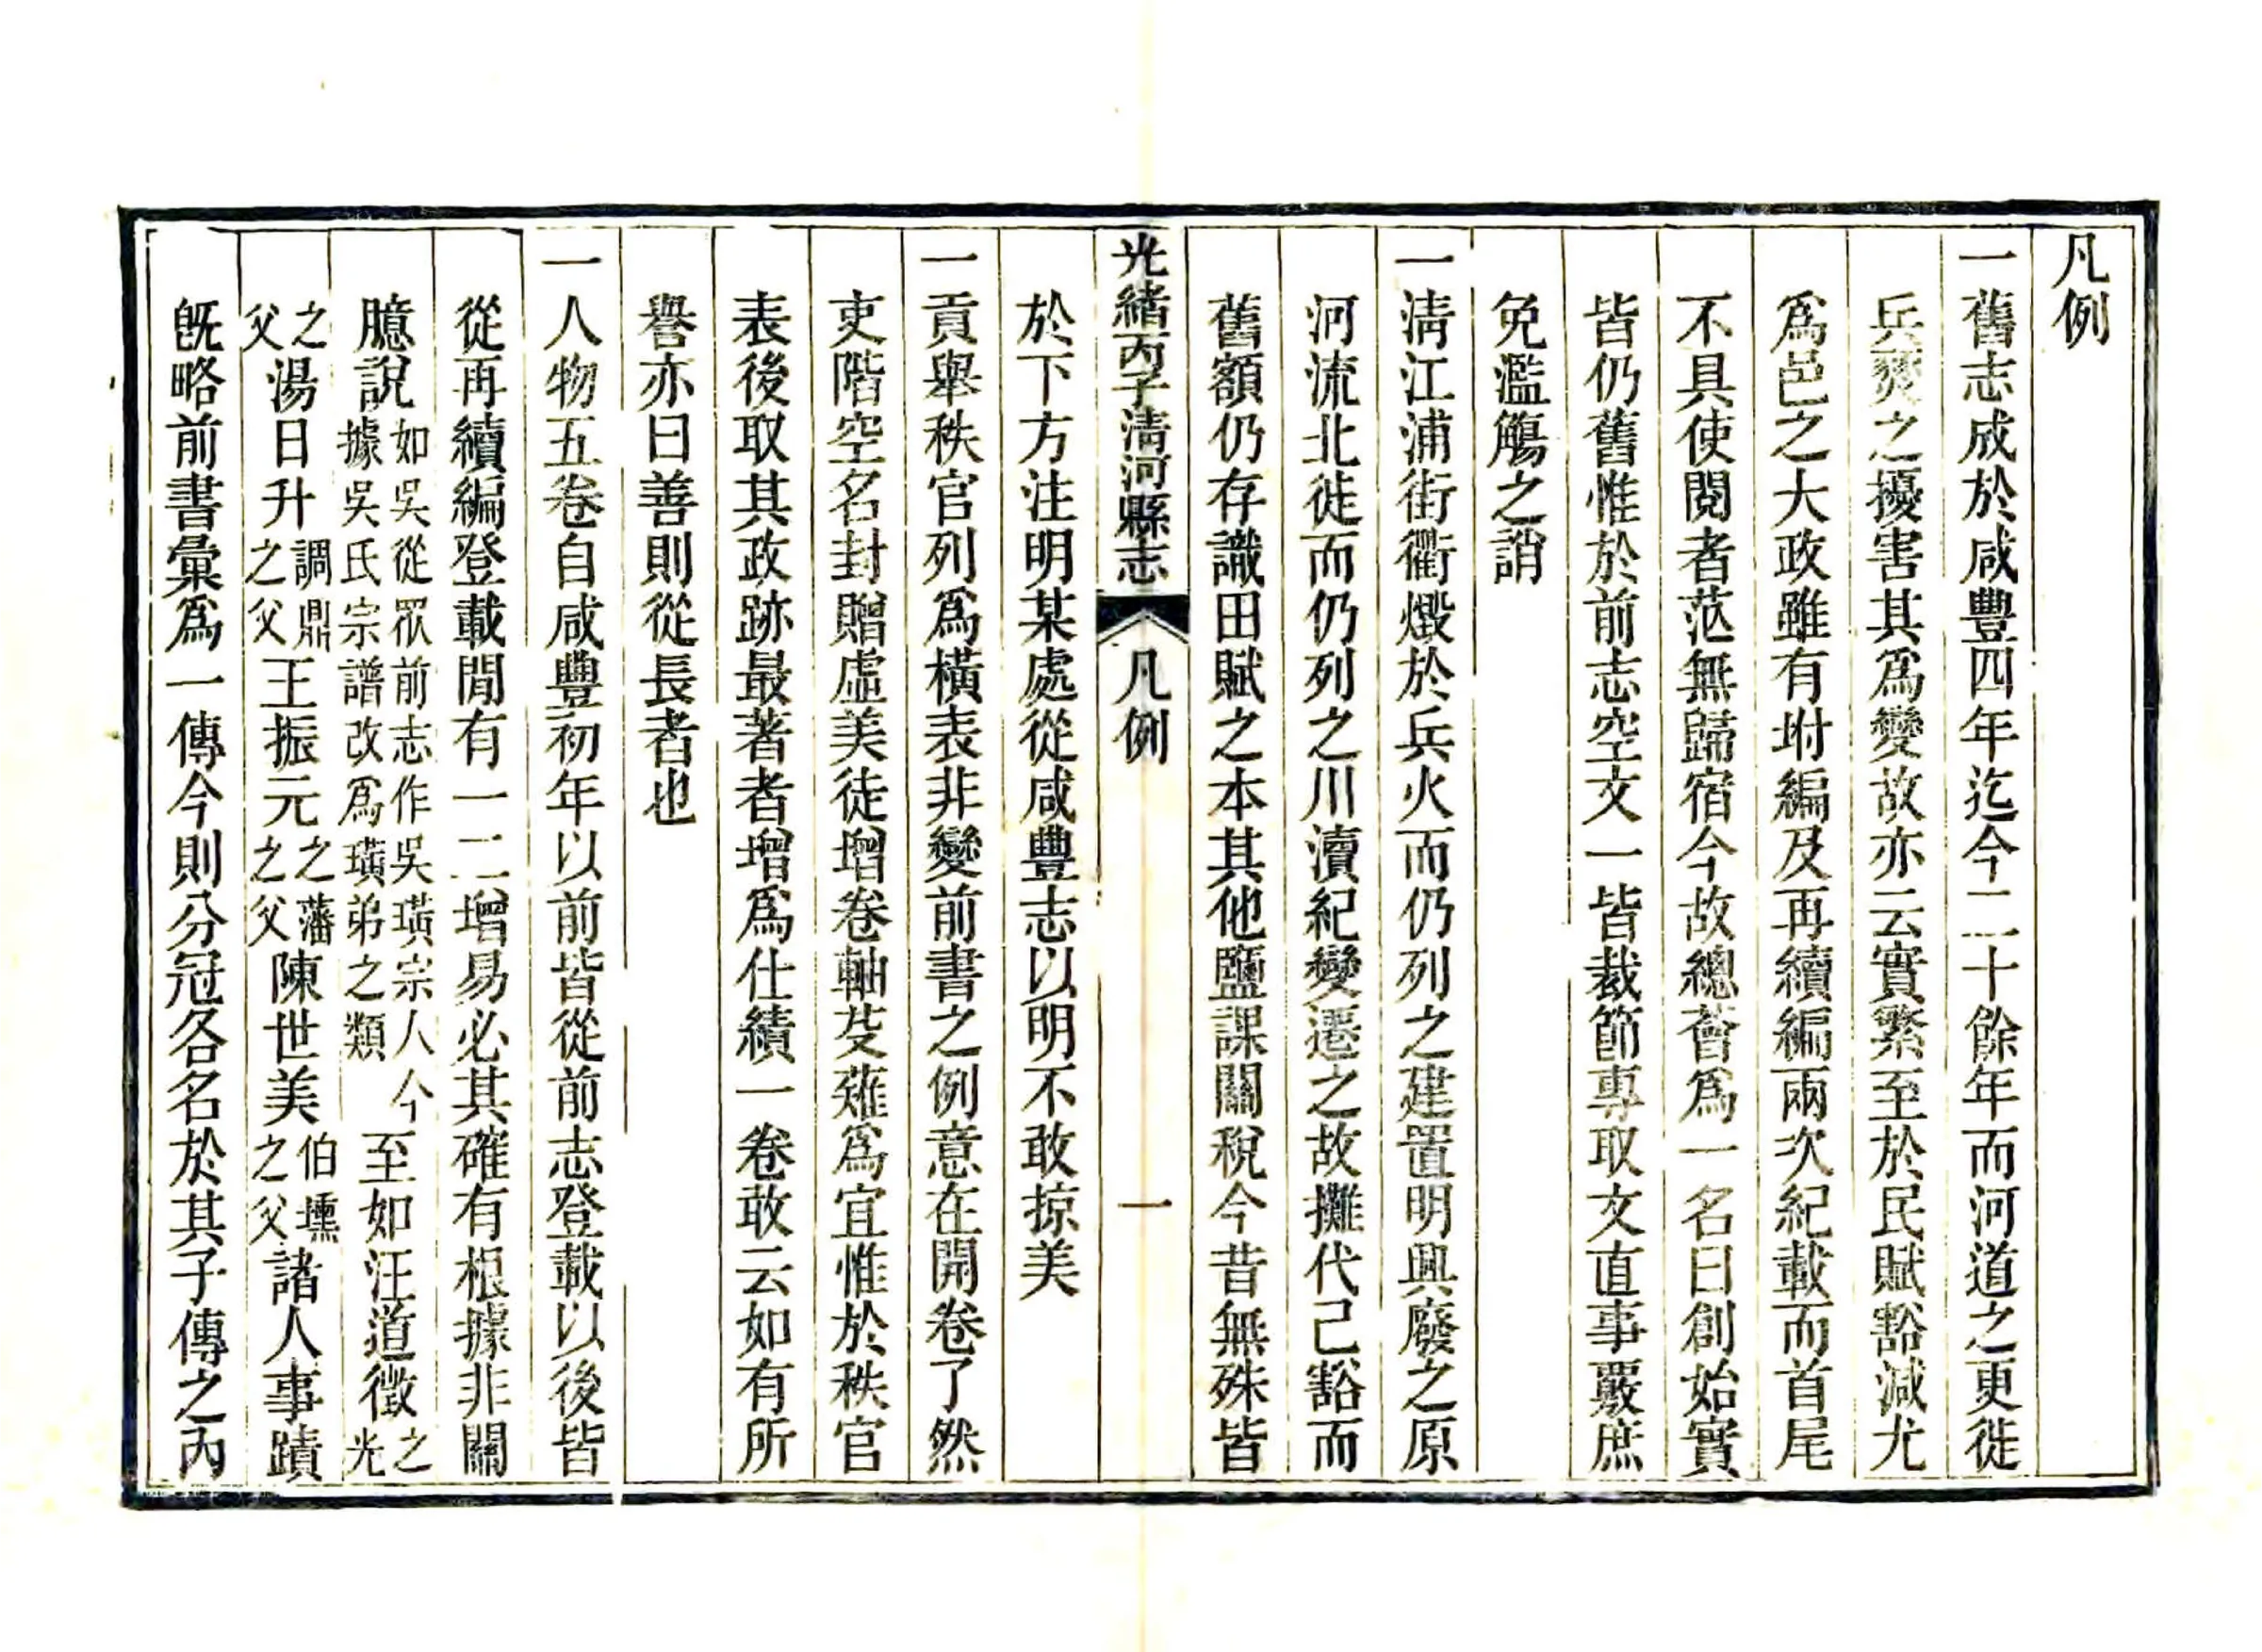 凡例
一舊志成於咸豐四年迄今二十餘年而河道之更徙
兵燹之擾害其爲變故亦云實繁至於民賦豁減尤
爲邑之大政雖有坿編及再續編兩次紀載而首尾
不具使閱者茫無歸宿今故總薈爲一名曰創始實
皆仍舊惟於前志空文一皆裁節專取文直事覈庶
免濫觴之誚
一清江浦街衢燬於兵火而仍列之建置明興廢之原
河流北徙而仍列之川瀆紀變遷之故攤代已豁而
舊額仍存識田賦之本其他鹽課關稅今昔無殊皆
光緒丙子清河縣志 凡例 一
於下方注明某處從咸豐志以明不敢掠美
一貢舉秩官列爲橫表非變前書之例意在開卷了然
吏階空名封贈虛美徒增卷軸芟薙爲宜惟於秩官
表後取其政跡最著者增爲仕績一卷敢云如有所
譽亦曰善則從長者也
一人物五卷自咸豐初年以前皆從前志登載以後皆
從再續編登載閒有一二增易必其確有根據非關
臆說如吳從眾前志作吳璜宗人今據吳氏宗譜改爲璜弟之類至如汪道徵之光
之父湯日升調鼎之父王振元之藩之父陳世美伯壎之父諸人事蹟
旣略前書彙爲一傳今則分冠各名於其子傳之內